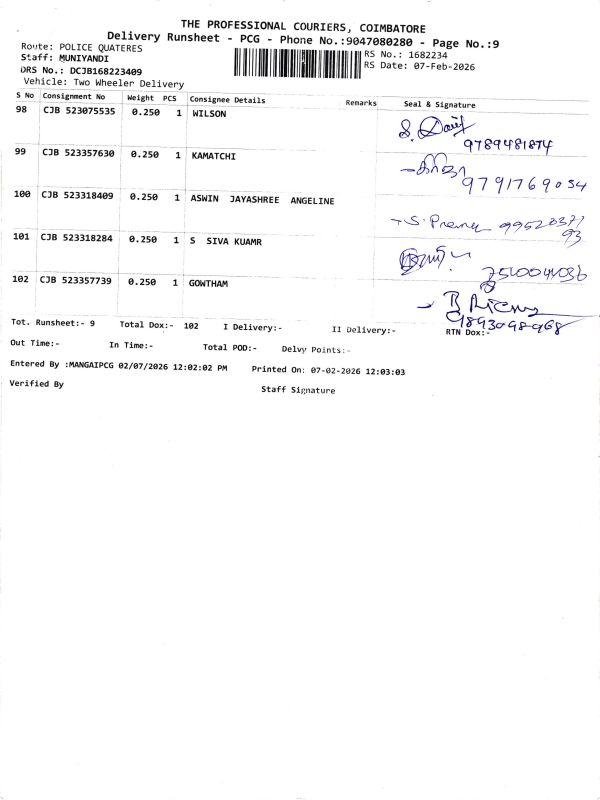 THE PROFESSIONAL COURIERS, COIMBATORE
Delivery Runsheet - PCG - Phone No.:9047080280 - Page No.:9
Route: POLICE QUATERES
RS No.: 1682234
Staff: MUNIYANDI
RS Date: 07-Feb-2026
DRS No.: DCJB168223409
Vehicle: Two Wheeler Delivery
S No Consignment No Weight PCS Consignee Details Remarks Seal & Signature
98 CJB 523075535 0.250 1 WILSON
9789481874
99 CJB 523357630 0.250 1 KAMATCHI
9791769054
100 CJB 523318409 0.250 1 ASWIN JAYASHREE ANGELINE
S. Prema
101 CJB 523318284 0.250 1 S SIVA KUAMR
102 CJB 523357739 0.250 1 GOWTHAM
Tot. Runsheet:- 9 Total Dox:- 102 I Delivery:- II Delivery:- RTN Dox:-
Out Time:- In Time:- Total POD:- Delvy Points:-
Entered By :MANGAIPCG 02/07/2026 12:02:02 PM Printed On: 07-02-2026 12:03:03
Verified By Staff Signature